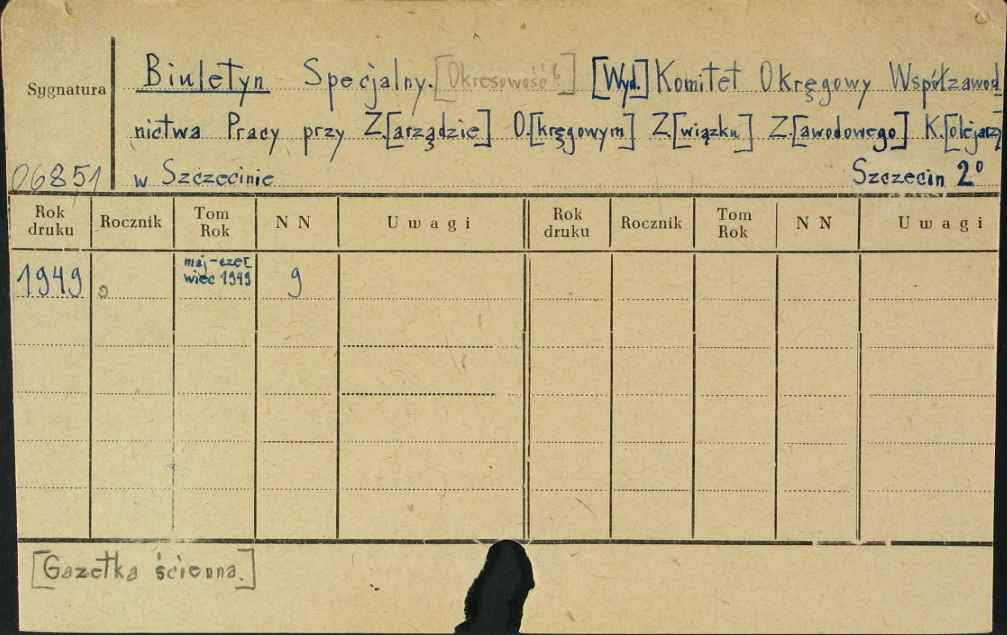 Sygnatura
Biuletyn Specjalny. [Okresowość?] [Wyd.] Komitet Okręgowy Współzawod
nictwa Pracy przy Z.[arządzie] O.[kręgowym] Z.[wiązku] Z.[awodowego] K.[olejarzy]
06851 w Szczecinie Szczecin 2°
Rok druku Rocznik Tom Rok N N Uwagi Rok druku Rocznik Tom Rok N N Uwagi
1949 maj-czer
wiec 1949 9
[Gazetka ścienna.]